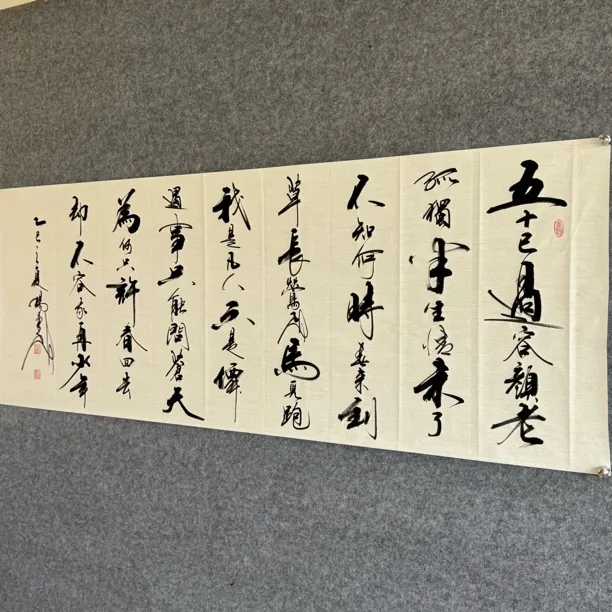 五十已过容颜老
孤獨半生情未了
不知何時暮来到
草長鶯飛馬見跑
我是凡人不是僊
遇事只能問蒼天
為何只許春回去
却不容我再少年
乙巳之夏